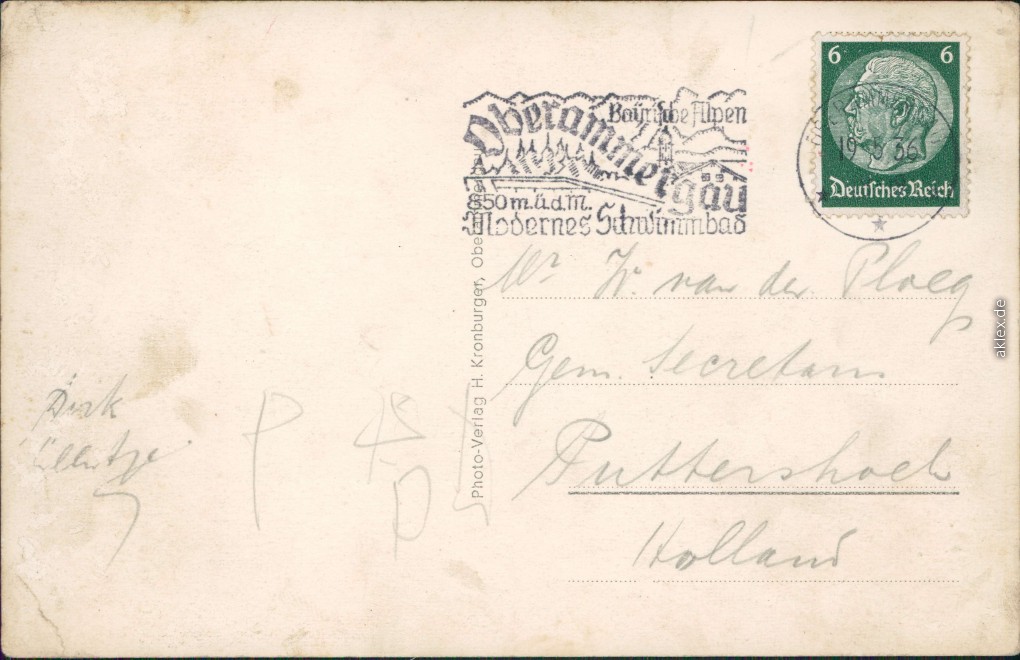 6 6
Deutsches Reich
Bayrische Alpen
Oberammergau
850 m.ü.d.M.
Modernes Schwimmbad
19 5 36
Photo-Verlag H. Kronburger, Ober
Mr W. van der Ploeg
Gem. Secretaris
Puttershoek
Holland
Dirk
aklex.de